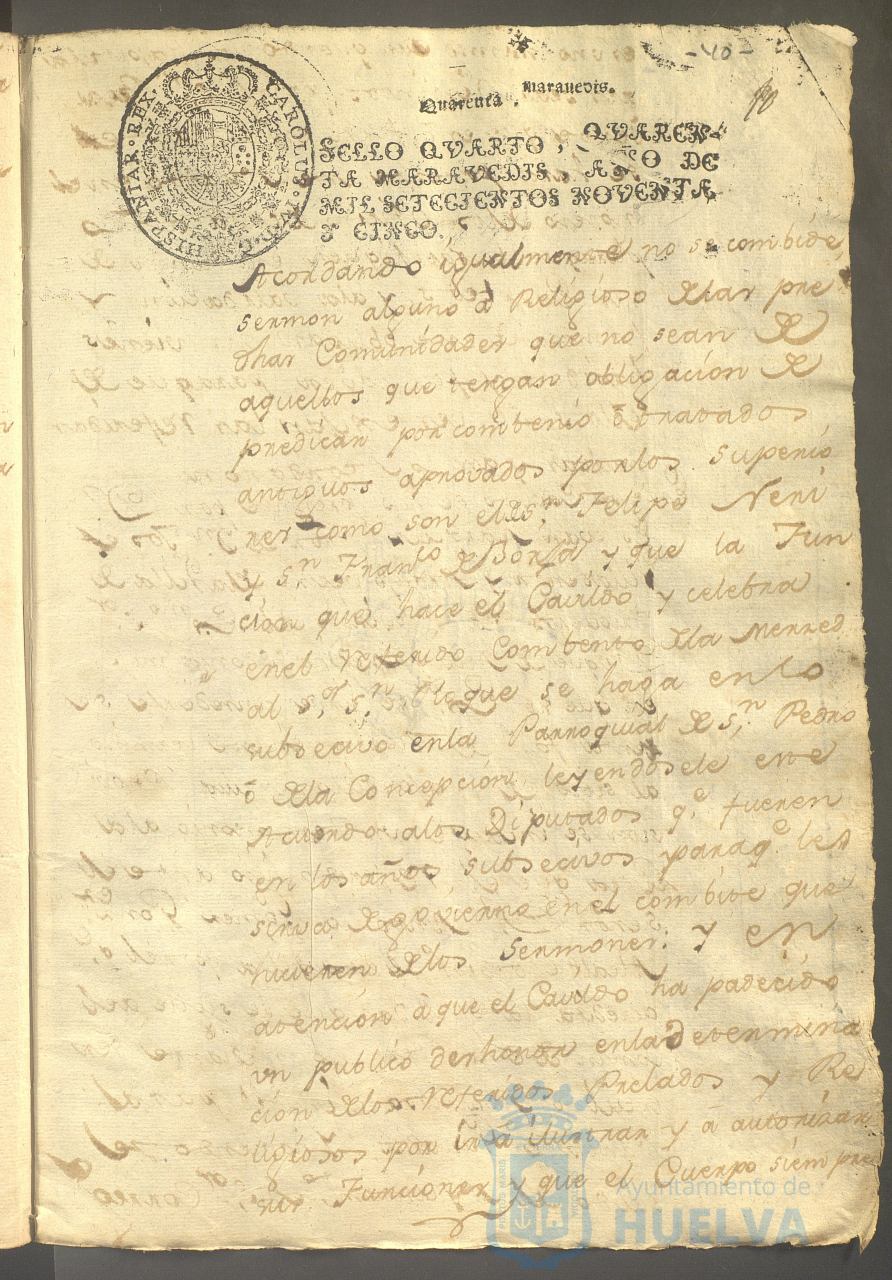 -40-
10
Quarenta maravedis.
CAROLUS·IV·D·G· HISPANIAR·REX·
SELLO QVARTO, QVAREN-
TA MARAVEDIS, AÑO DE
MIL SETECIENTOS NOVENTA
Y CINCO.
Acordando igualmente no se combide
sermon alguno â Religioso xlar pre
dhar Comunidader que no sean xe
aquellos que tengan obligacion xe
predicar por combenio ô tratados
antiguos aprovados por los superio
rer como son el de Sn. Felipe Neri
y Sn. Franco. xe Borja y que la Fun
cion que hace el Cavildo y celebra
enel referido Combento xla Merzed
al Sor. Sn. que se haga enlo
subsecivo enla Parroquial xe Sn. Pedro
ô xla Concepcion leyendosele este
Acuerdo alos Diputados qe. fueren
en los años subsecivos paraqe. les
sirva xe govierno enel combite que
hicieren xlos sermoner. y en
atencion â que el Cavildo ha padecido
un publico deshonor enla determina
cion xlos referidos Prelados y Re
ligiosos por ir â ilustrar y â autorizar
sus Funcioner y que el Cuerpo siempre
Ayuntamiento de
HUELVA